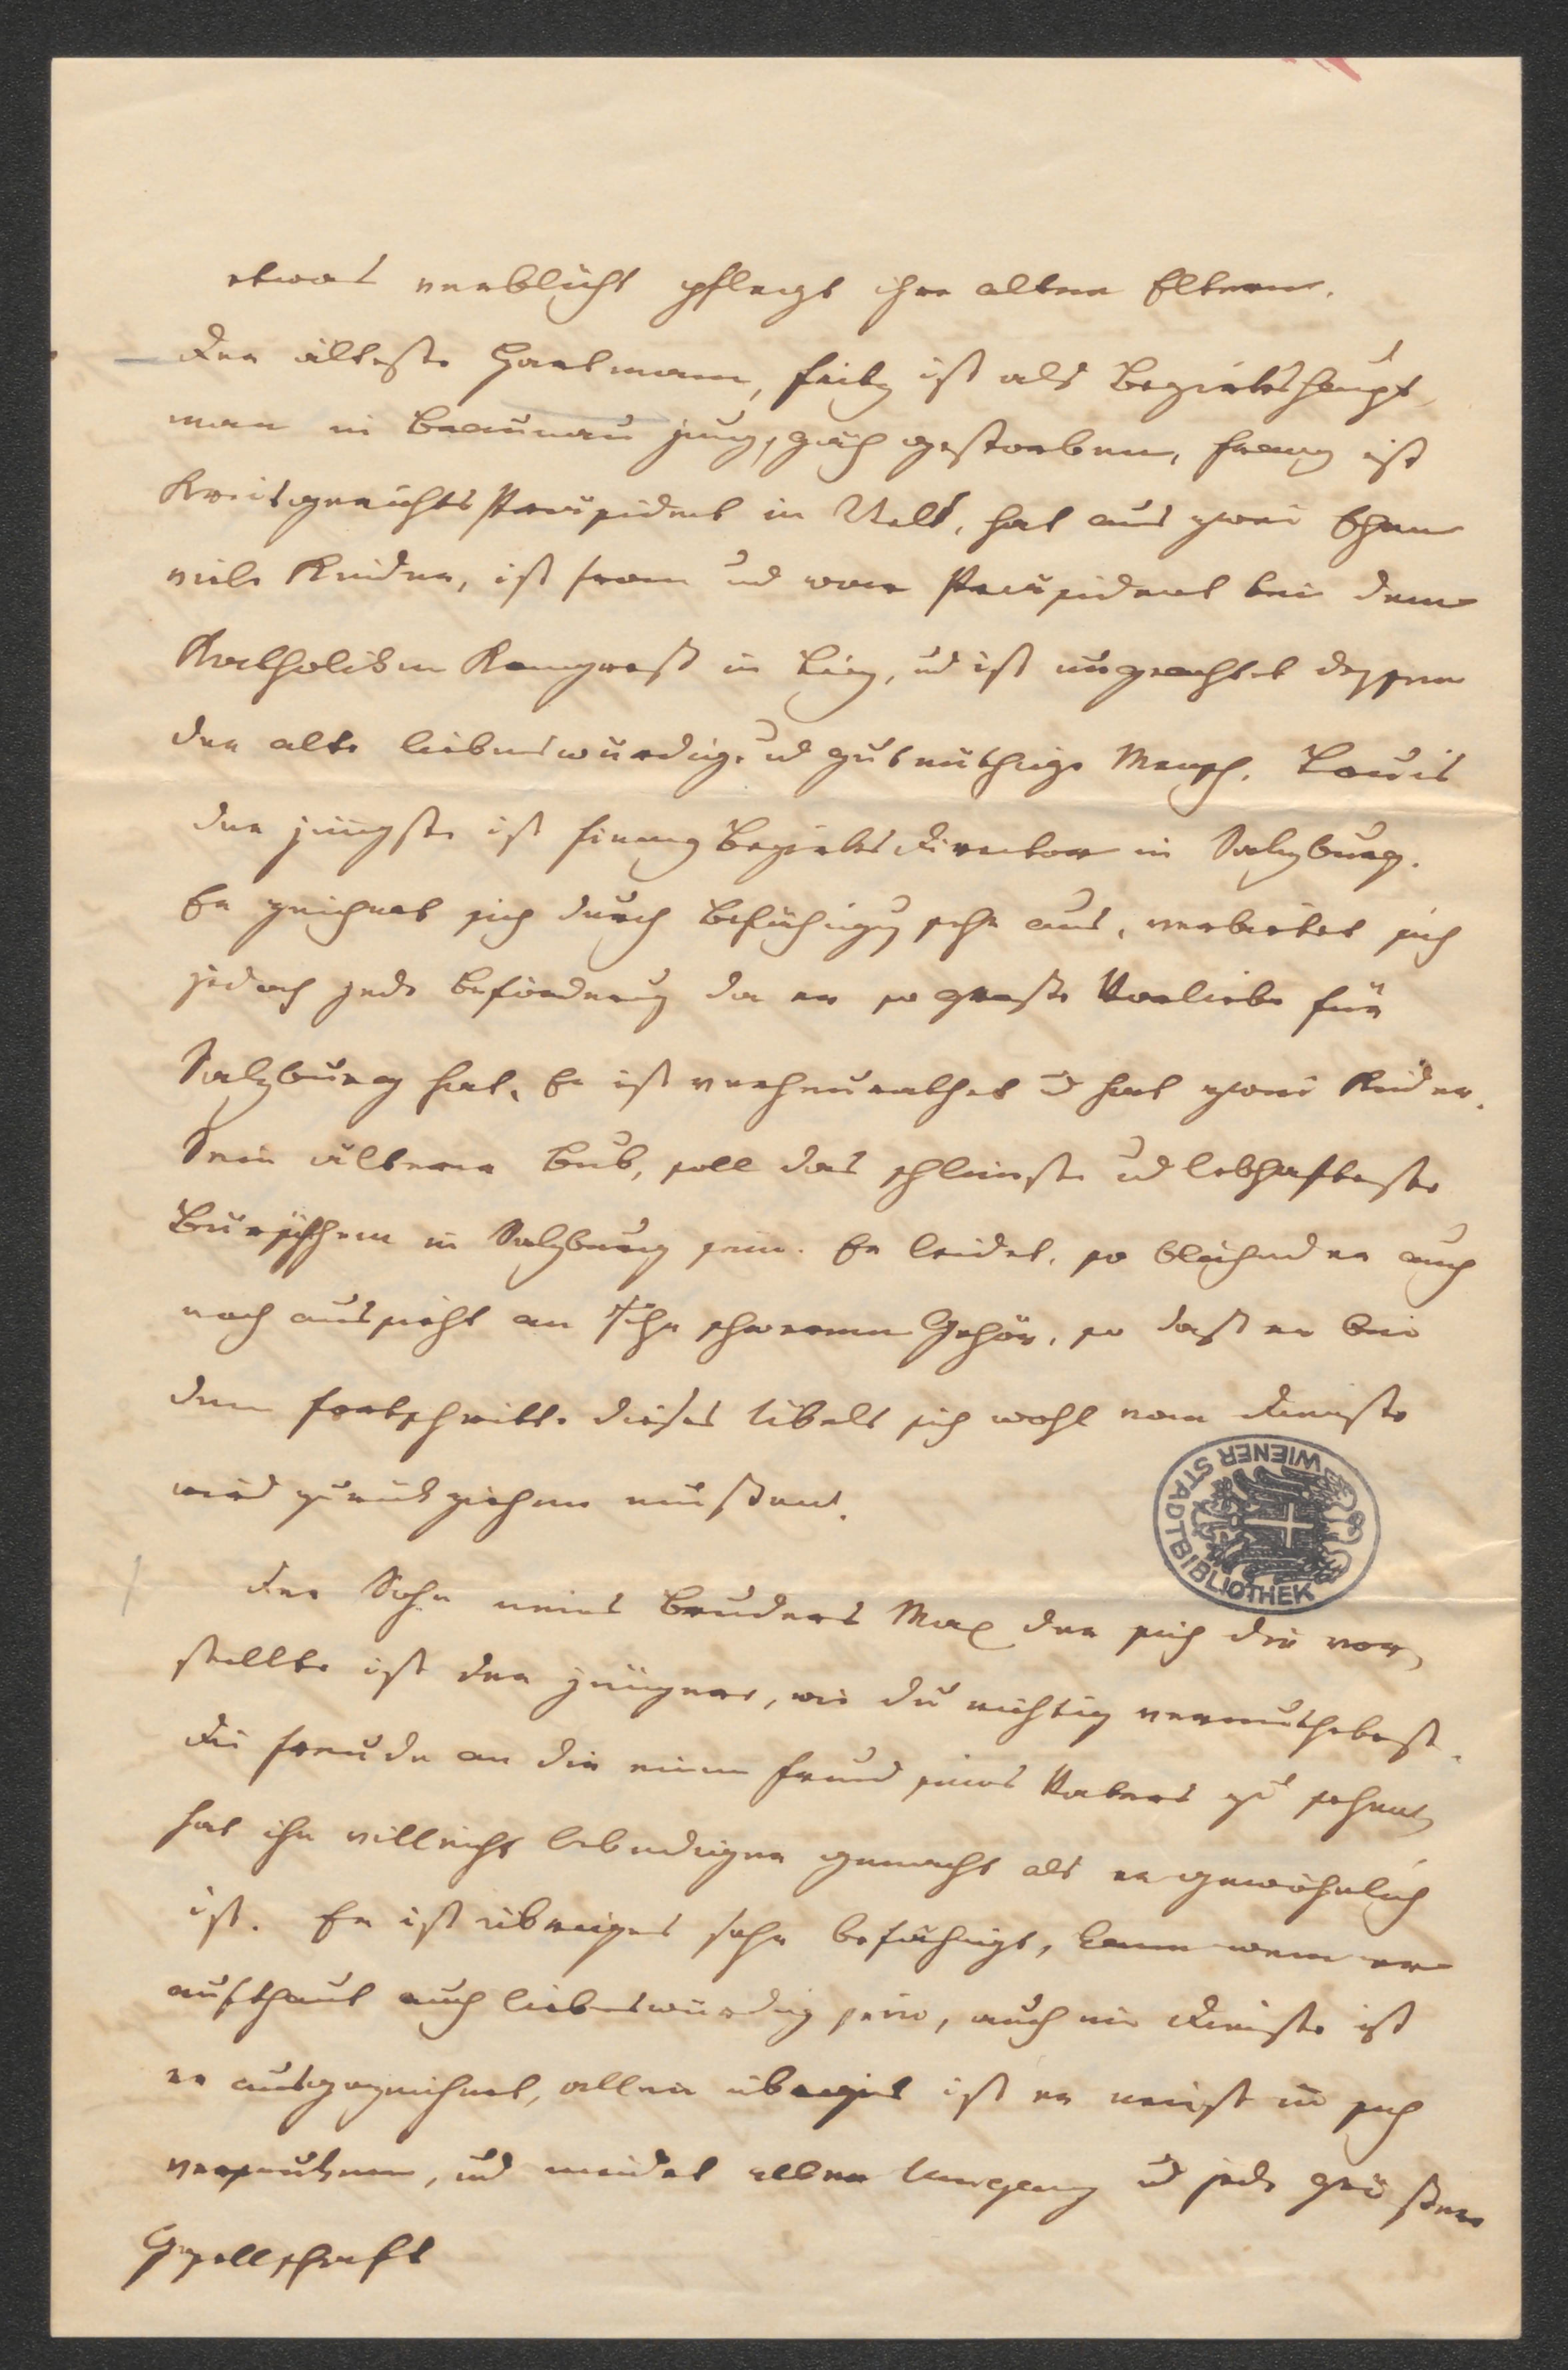 etwas verblüht pflegt ihre alten Eltern.
Der älteste Hartmann, Fritz ist als Bezirkshaupt-
man in Braunau jung, gäh gestorben, Franz ist
Kreisgerichts Präsident in Wels, hat aus zwei Ehen
viele Kinder, ist from und war Präsident bei dem
Katholiken Kongreß in Linz, und ist ungeachtet dessen
der alte liebenswürdige und gutmüthige Mensch. Louis
der jüngste ist Finanz Bezirks Director in Salzburg.
Er zeichnet sich durch Befähigung sehr aus, verbietet sich
jedoch jede Beförderung da er so große Vorliebe für
Salzburg hat. Er ist verheurathet u hat zwei Kinder.
Sein älterer Bub, soll das schlimste und lebhafteste
Bürschchen in Salzburg sein. Er leidet, so blühend er auch
noch aussieht an sehr schwerem Gehör, so daß er bei
dem Fortschritte dieses Übels sich wohl vom Dienste
wird zurückziehen mußen.
Der Sohn meines Bruders Max der sich dir vor-
stellte ist der jüngere, wie du richtig vermuthetest.
Die Freude an dir einen Freund seines Vaters zu sehen
hat ihn villeicht lebendiger gemacht als er gewöhnlich
ist. Er ist übrigens sehr befähigt, kann wenn er
aufthaut auch liebenswürdig sein, auch im Dienste ist
er ausgezeichnet, allein übrigens ist er meist in sich
versunken, und meidet allen Umgang und jede größere
Gesellschaft
WIENER STADTBIBLIOTHEK